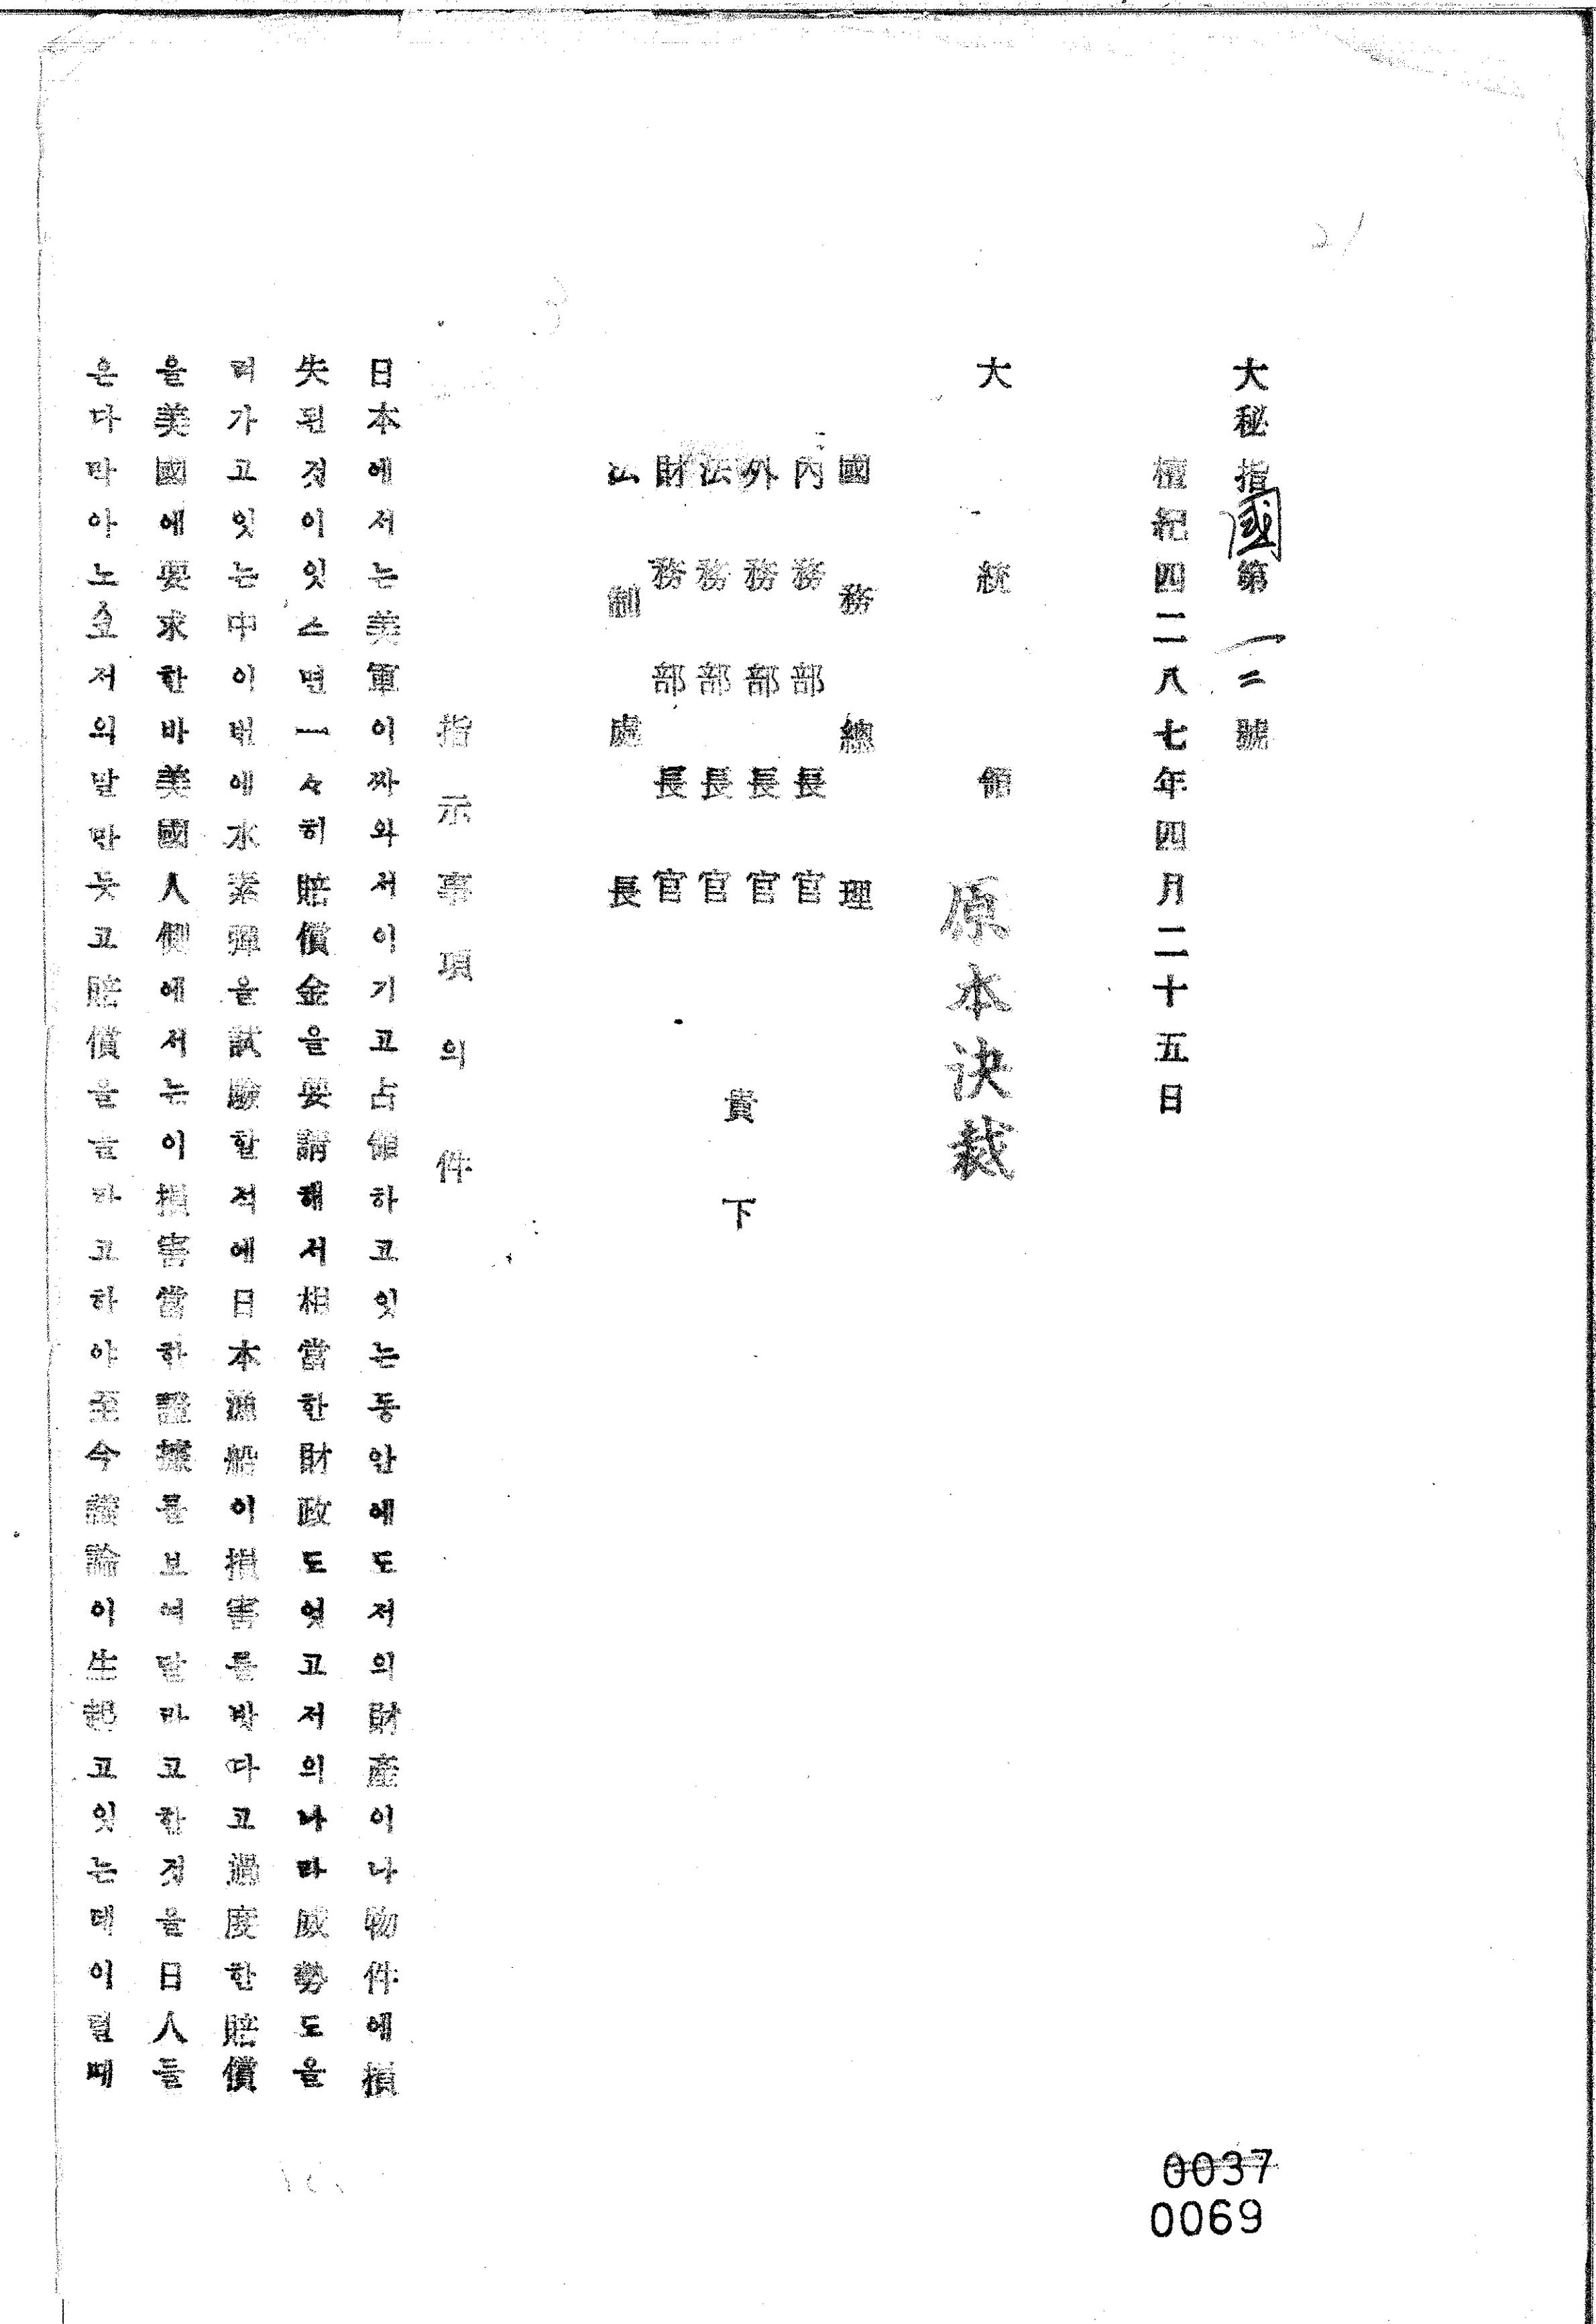 大秘指國第一二號
檀紀四二八七年四月二十五日
大統領 原本決裁
國務總理
內務部長官
外務部長官
法務部長官
財務部長官
法制處長
貴下
指示事項의件
日本에서는美軍이짜와서이기고占領하고잇는동안에도저의財產이나物件에損
失된것이잇스면一々히賠償金을要請해서相當한財政도엇고저의나라威勢도올
려가고잇는中이번에水素彈을試驗할적에日本漁船이損害를밧다고過度한賠償
을美國에要求한바美國人側에서는이損害當한證據를보여달라고한것을日人들
은다만아노코저의말만듯고賠償을늘라고하야至今議論이生起고잇는데이럴때
0037
0069